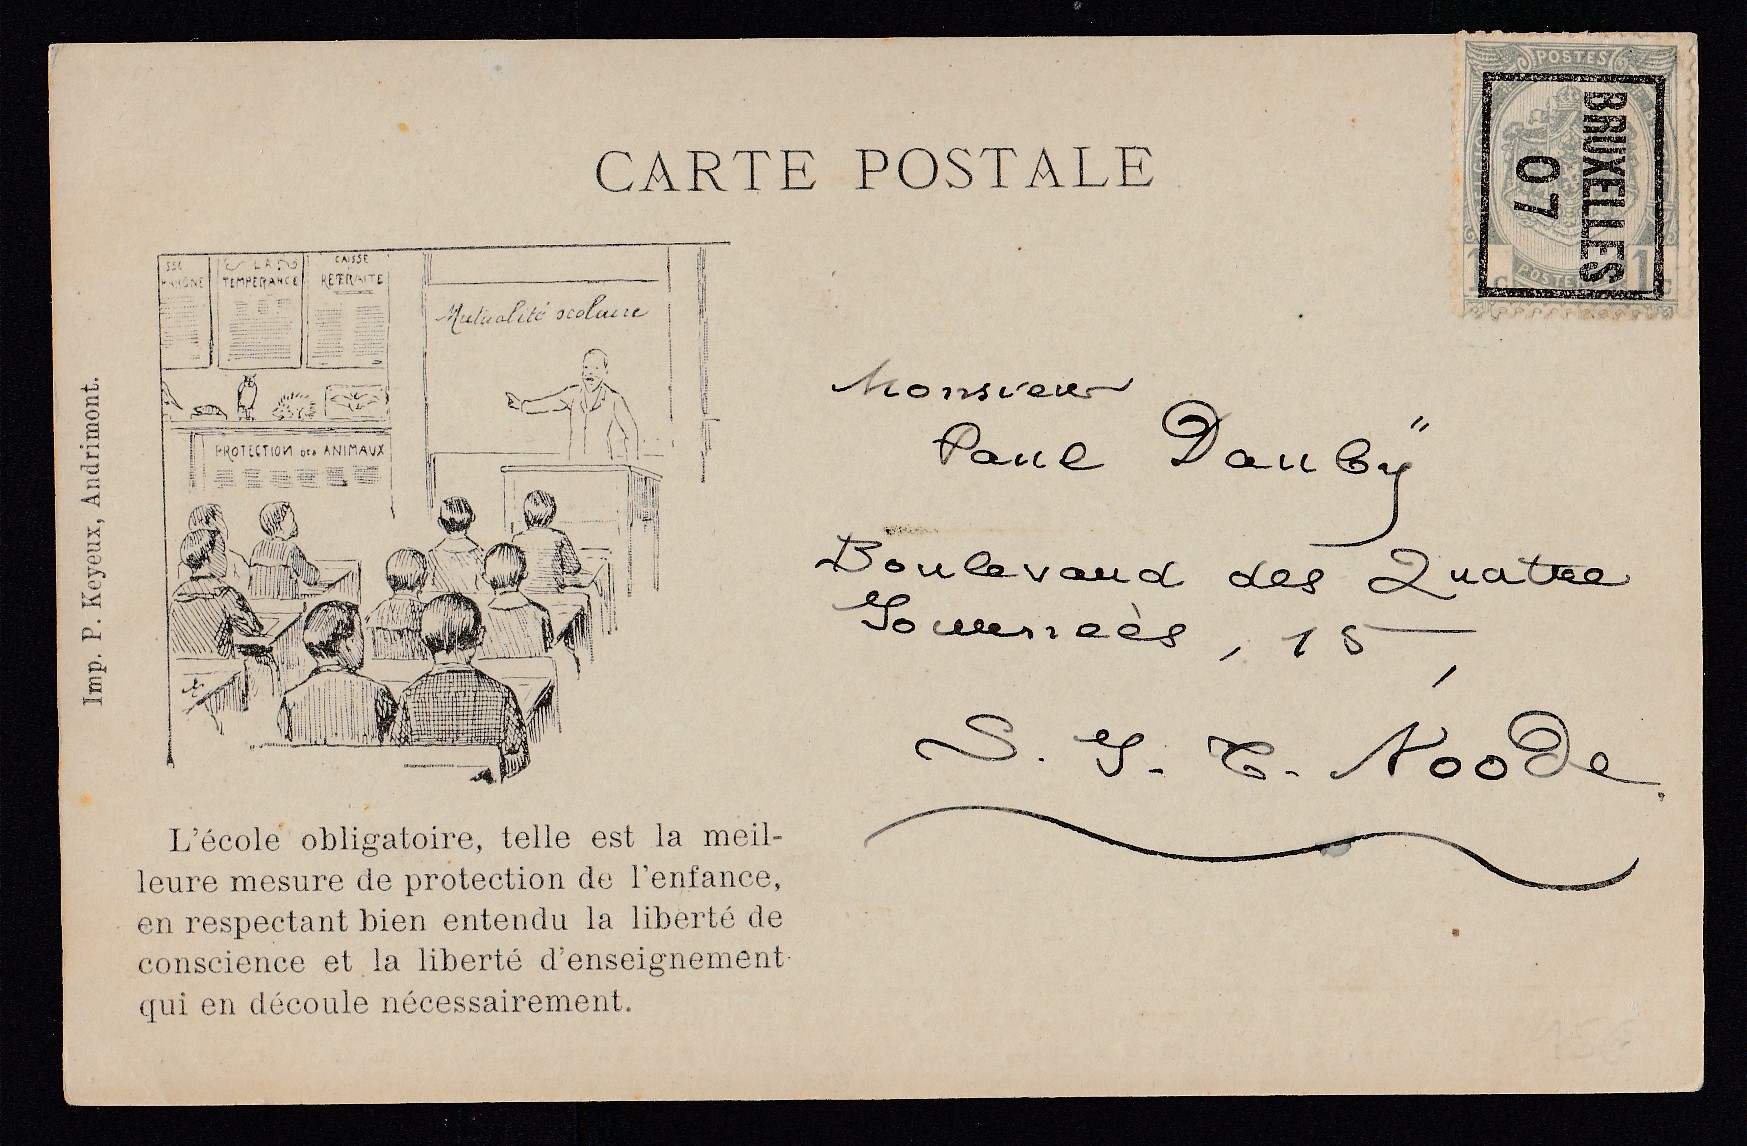 CARTE POSTALE
POSTES
BRUXELLES
07
POSTES
1 C
1 C
SSE
LA
TEMPERANCE
CAISSE
RETRAITE
Mutualité scolaire
PROTECTION des ANIMAUX
Imp. P. Keyeux, Andrimont.
L'école obligatoire, telle est la meil-
leure mesure de protection de l'enfance,
en respectant bien entendu la liberté de
conscience et la liberté d'enseignement
qui en découle nécessairement.
Monsieur
Paul Dauby
Boulevard des Quatre
Journées, 15,
S. J. T. Noode.